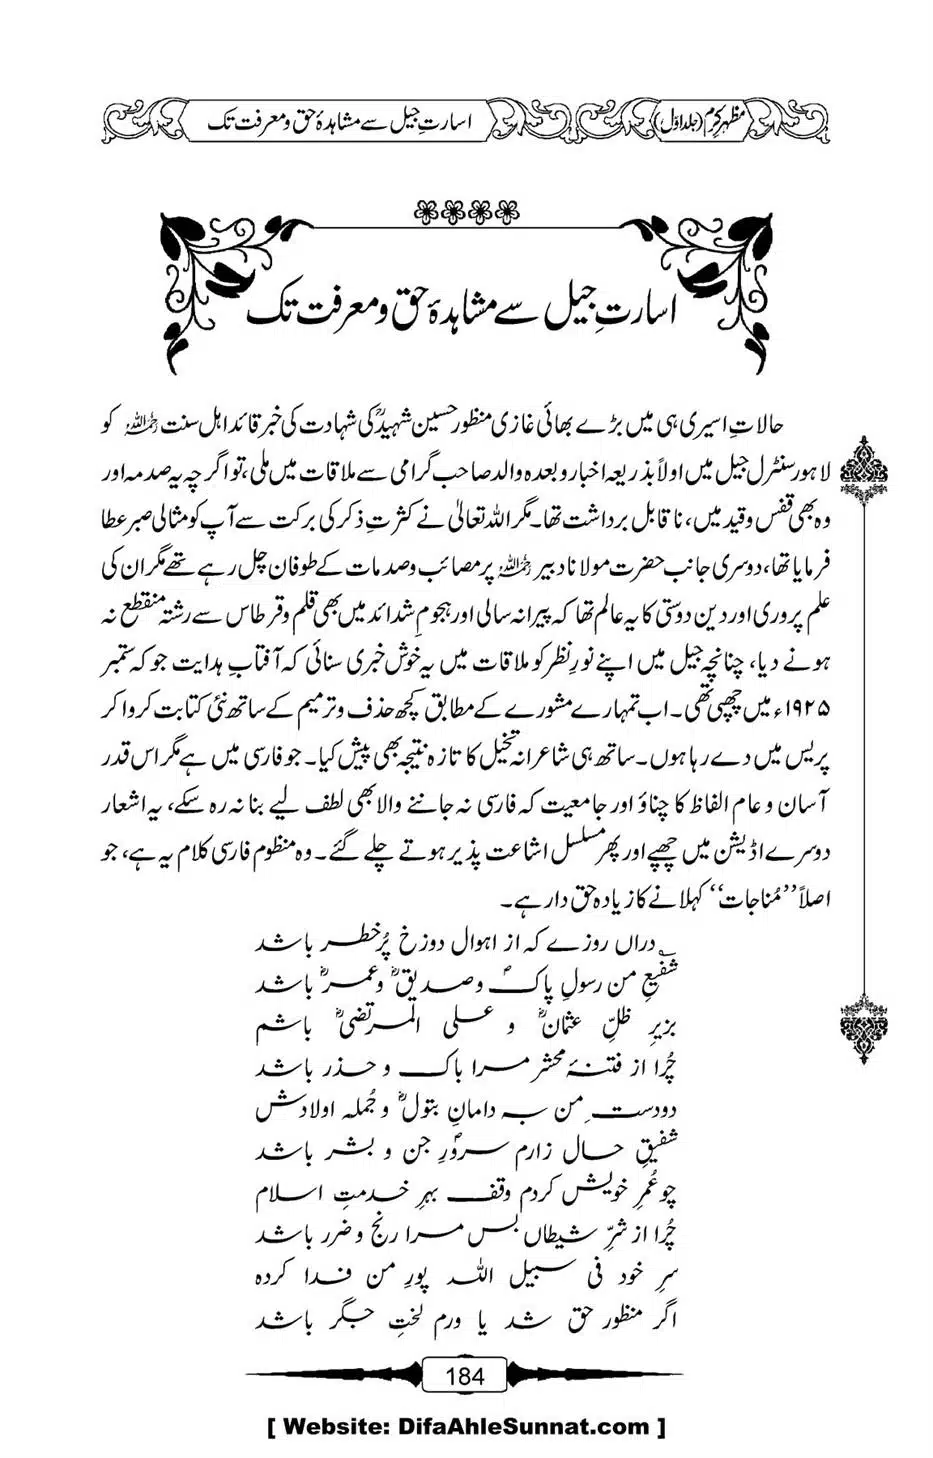 مظہرِ کرم (جلد اوّل)
اسارتِ جیل سے مشاہدۂ حق و معرفت تک
اسارتِ جیل سے مشاہدۂ حق و معرفت تک
حالاتِ اسیری ہی میں بڑے بھائی غازی منظور حسین شہیدؒ کی شہادت کی خبر قائد اہل سنت رحمہ اللہ کو
لاہور سنٹرل جیل میں اولاً بذریعہ اخبار و بعدہ والد صاحب گرامی سے ملاقات میں ملی، تو اگرچہ یہ صدمہ اور
وہ بھی قفس و قید میں، ناقابل برداشت تھا۔ مگر اللہ تعالیٰ نے کثرتِ ذکر کی برکت سے آپ کو مثالی صبر عطا
فرمایا تھا، دوسری جانب حضرت مولانا دبیر رحمہ اللہ پر مصائب و صدمات کے طوفان چل رہے تھے مگر ان کی
علم پروری اور دین دوستی کا یہ عالم تھا کہ پیرانہ سالی اور ہجومِ شدائد میں بھی قلم و قرطاس سے رشتہ منقطع نہ
ہونے دیا، چنانچہ جیل میں اپنے نورِ نظر کو ملاقات میں یہ خوش خبری سنائی کہ آفتابِ ہدایت جو کہ ستمبر
۱۹۲۵ء میں چھپی تھی۔ اب تمہارے مشورے کے مطابق کچھ حذف و ترمیم کے ساتھ نئی کتابت کروا کر
پریس میں دے رہا ہوں۔ ساتھ ہی شاعرانہ تخیل کا تازہ نتیجہ بھی پیش کیا۔ جو فارسی میں ہے مگر اس قدر
آسان و عام الفاظ کا چناؤ اور جامعیت کہ فارسی نہ جاننے والا بھی لطف لیے بنا نہ رہ سکے، یہ اشعار
دوسرے اڈیشن میں چھپے اور پھر مسلسل اشاعت پذیر ہوتے چلے گئے۔ وہ منظوم فارسی کلام یہ ہے، جو
اصلاً ”مُناجات“ کہلانے کا زیادہ حق دار ہے۔
؎ دراں روزے کہ از اہوال دوزخ پُرخطر باشد
شفیعِ من رسولِ پاکؐ و صدیقؓ و عمرؓ باشد
بزیرِ ظلِّ عثمانؓ و علی المرتضیؓ باشم
چُرا از فتنۂ محشر مرا باک و حذر باشد
دودستِ من بہ دامانِ بتولؓ و جُملہ اولادش
شفیقِ حال زارم سرورِؐ جن و بشر باشد
چو عُمرِ خویش کردم وقف بہرِ خدمتِ اسلام
چُرا از شرِّ شیطاں بس مرا رنج و ضرر باشد
سرِ خود فی سبیل اللہ پورِ من فدا کردہ
اگر منظور حق شد یا ورم لختِ جگر باشد
184
[ Website: DifaAhleSunnat.com ]